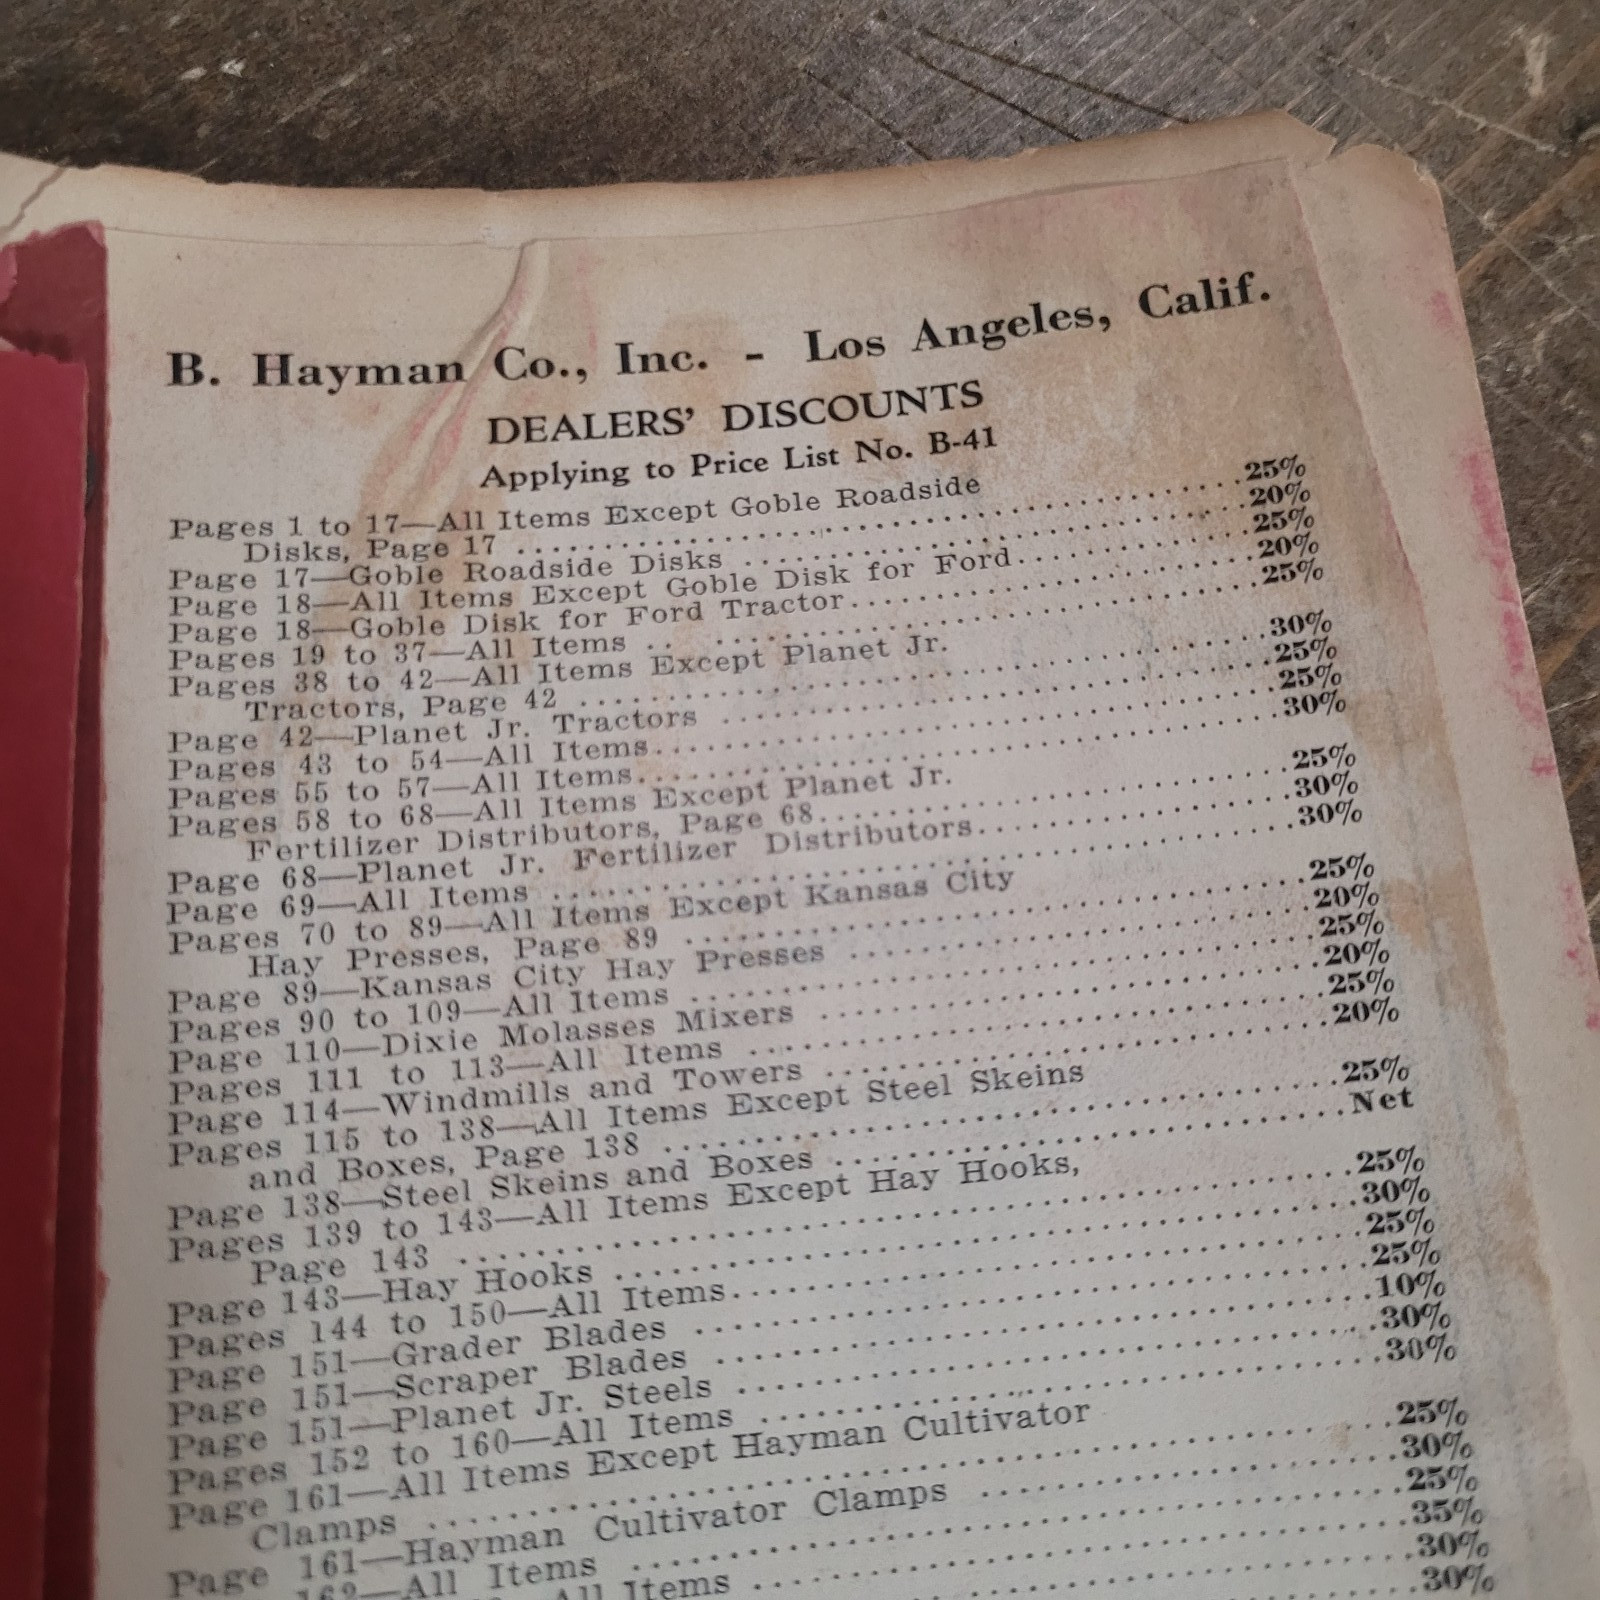 B. Hayman Co., Inc. - Los Angeles, Calif.
DEALERS' DISCOUNTS
Applying to Price List No. B-41
Pages 1 to 17—All Items Except Goble Roadside
Disks, Page 17 ........ 25%
Page 17—Goble Roadside Disks ........ 20%
Page 18—All Items Except Goble Disk for Ford ........ 25%
Page 18—Goble Disk for Ford Tractor ........ 20%
Pages 19 to 37—All Items ........ 25%
Pages 38 to 42—All Items Except Planet Jr.
Tractors, Page 42 ........ 30%
Page 42—Planet Jr. Tractors ........ 25%
Pages 43 to 54—All Items ........ 25%
Pages 55 to 57—All Items ........ 30%
Pages 58 to 68—All Items Except Planet Jr.
Fertilizer Distributors, Page 68 ........ 25%
Page 68—Planet Jr. Fertilizer Distributors ........ 30%
Page 69—All Items ........ 30%
Pages 70 to 89—All Items Except Kansas City
Hay Presses, Page 89 ........ 25%
Page 89—Kansas City Hay Presses ........ 20%
Pages 90 to 109—All Items ........ 25%
Page 110—Dixie Molasses Mixers ........ 20%
Pages 111 to 113—All Items ........ 25%
Page 114—Windmills and Towers ........ 20%
Pages 115 to 138—All Items Except Steel Skeins
and Boxes, Page 138 ........ 25%
Page 138—Steel Skeins and Boxes ........ Net
Pages 139 to 143—All Items Except Hay Hooks,
Page 143 ........ 25%
Page 143—Hay Hooks ........ 30%
Pages 144 to 150—All Items ........ 25%
Page 151—Grader Blades ........ 25%
Page 151—Scraper Blades ........ 10%
Page 151—Planet Jr. Steels ........ 30%
Pages 152 to 160—All Items ........ 30%
Page 161—All Items Except Hayman Cultivator
Clamps ........ 25%
Page 161—Hayman Cultivator Clamps ........ 30%
162—All Items ........ 25%
All Items ........ 35%
30%
30%